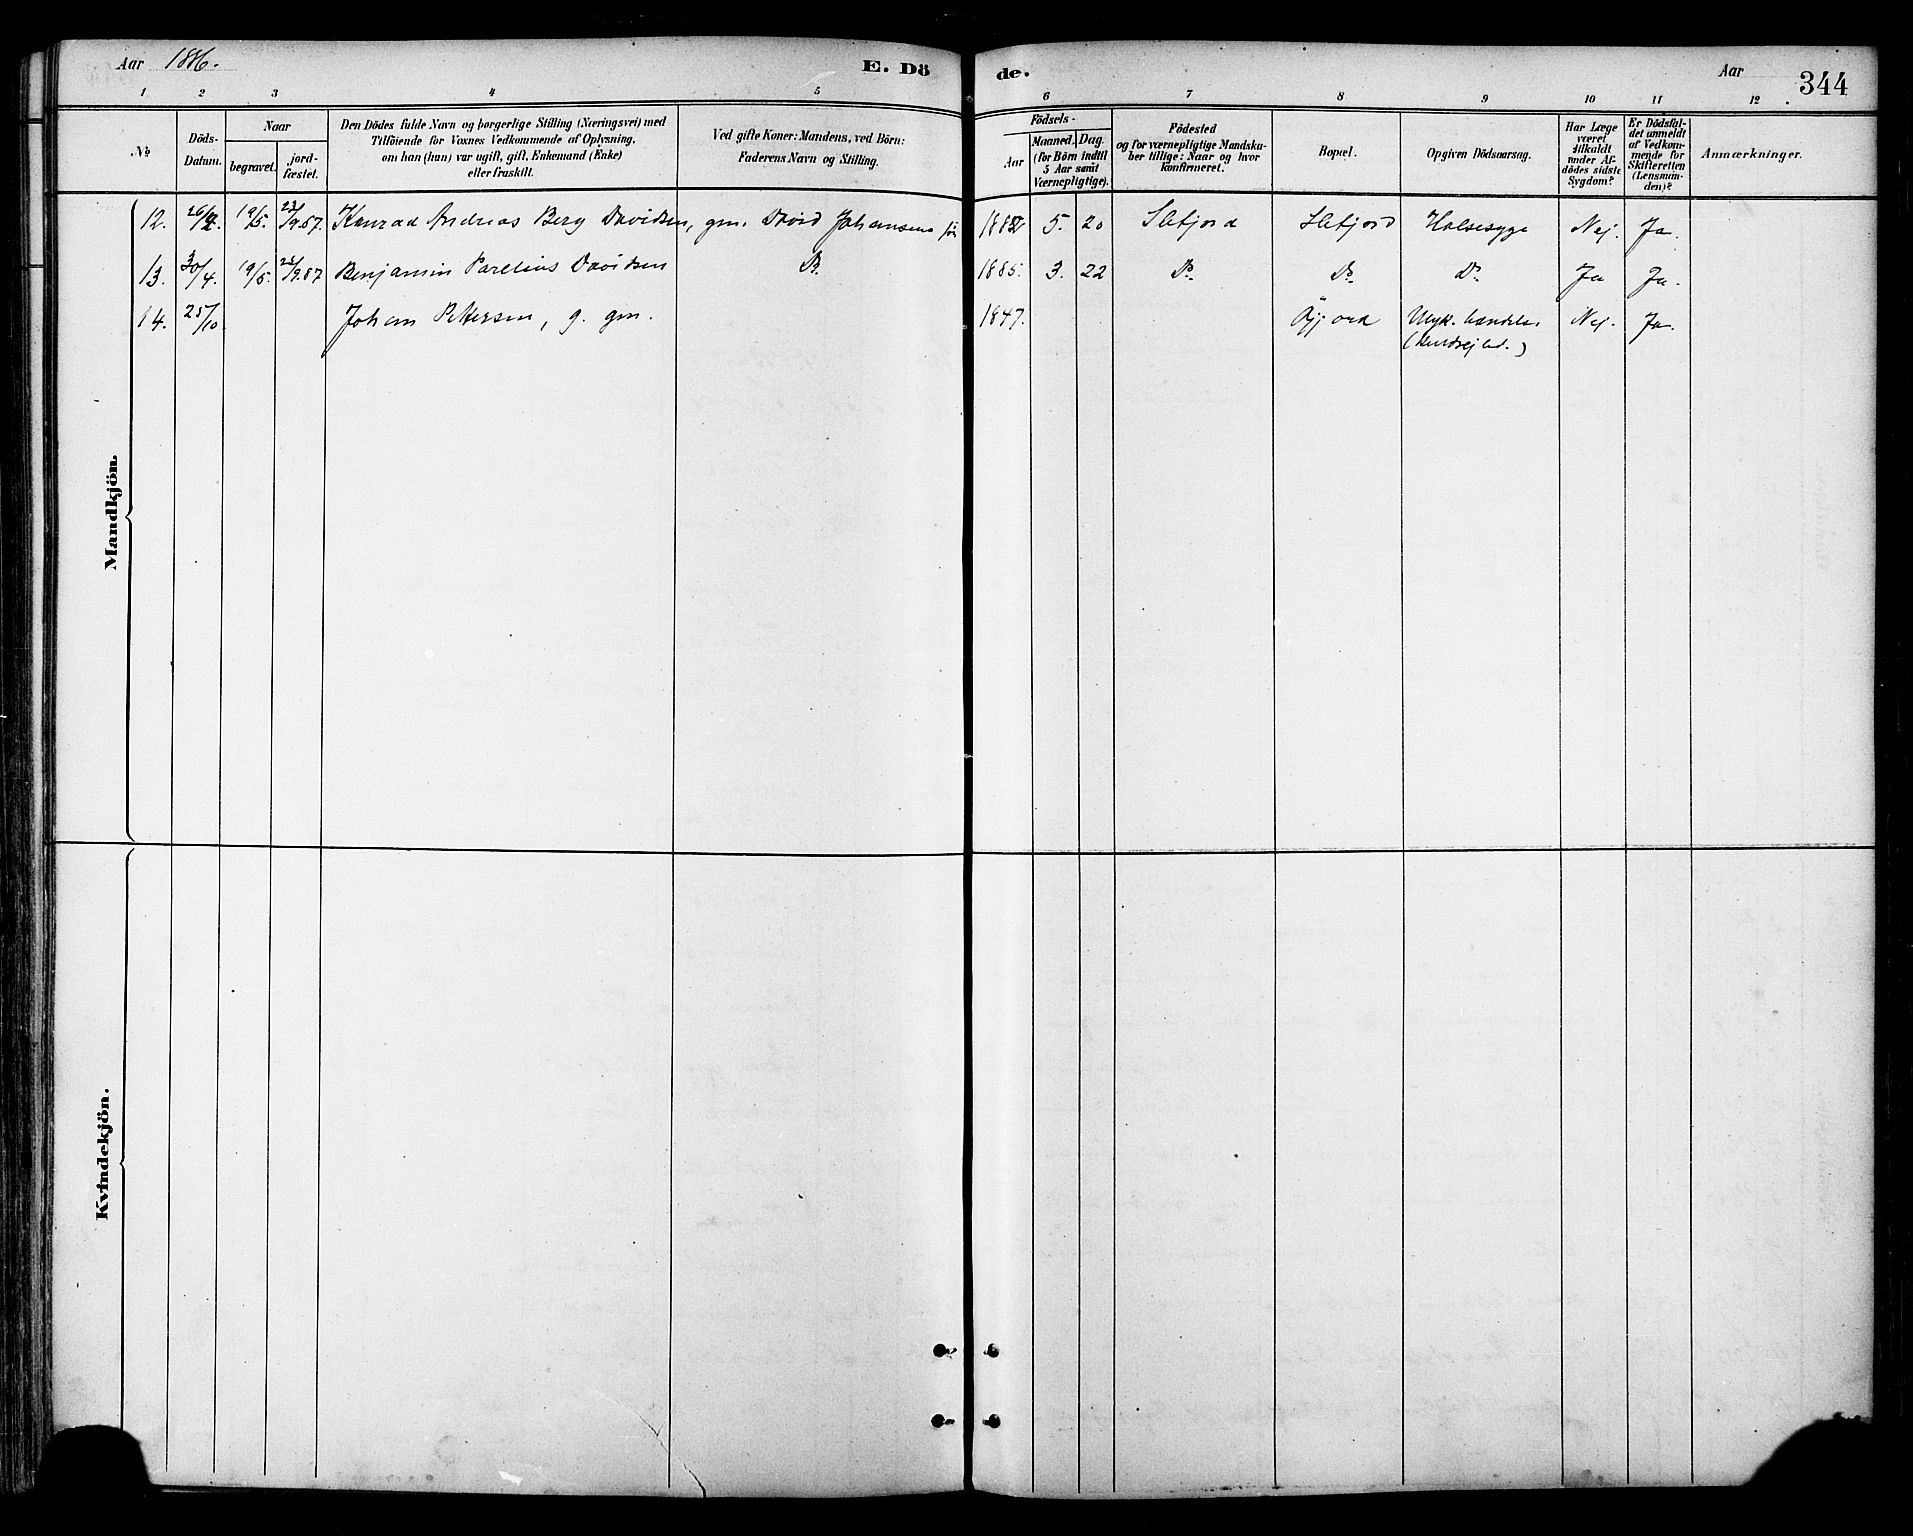 Aar 1886.
E. Dö
de.
Aar
344
1 2 3 4 5 6 7 8 9 10 11 12
No
Döds-
Datum.
Naar
begravet.
jord-
fæstet.
Den Dödes fulde Navn og borgerlige Stilling (Næringsvei) med
Tilföiende for Voxnes Vedkommende af Oplysning,
om han (hun) var ugift, gift, Enkemand (Enke)
eller fraskilt.
Ved gifte Koner: Mandens, ved Börn:
Faderens Navn og Stilling.
Födsels-
Aar
Maaned.
Dag.
(for Börn indtil
5 Aar samt
Værnepligtige).
Födested
og for værnepligtige Mandska-
ber tillige: Naar og hvor
konfirmeret.
Bopæl.
Opgiven Dödsaarsag.
Har Læge
været
tilkaldt
under Af-
dödes sidste
Sygdom?
Er Dödsfal-
det anmeldt
af Vedkom-
mende for
Skifteretten
(Lensman-
den)?
Anmærkninger.
Mandkjön.
12. 19/5. Konrad Andreas Berg Davidsen, gm. David Johansens 5. 20 Slefjord Slefjord Halsesyge Nej. Ja.
13. 30/4. 19/5. 23/9.87 Benjamin Parelius Davidsen Do. 1885. 3. 22 Do. Do. Do. Ja Ja.
14. 25/10. Johan Pettersen, g. gm. 1847. Ulyk. hændelse Nej. Ja.
Kvindekjön.